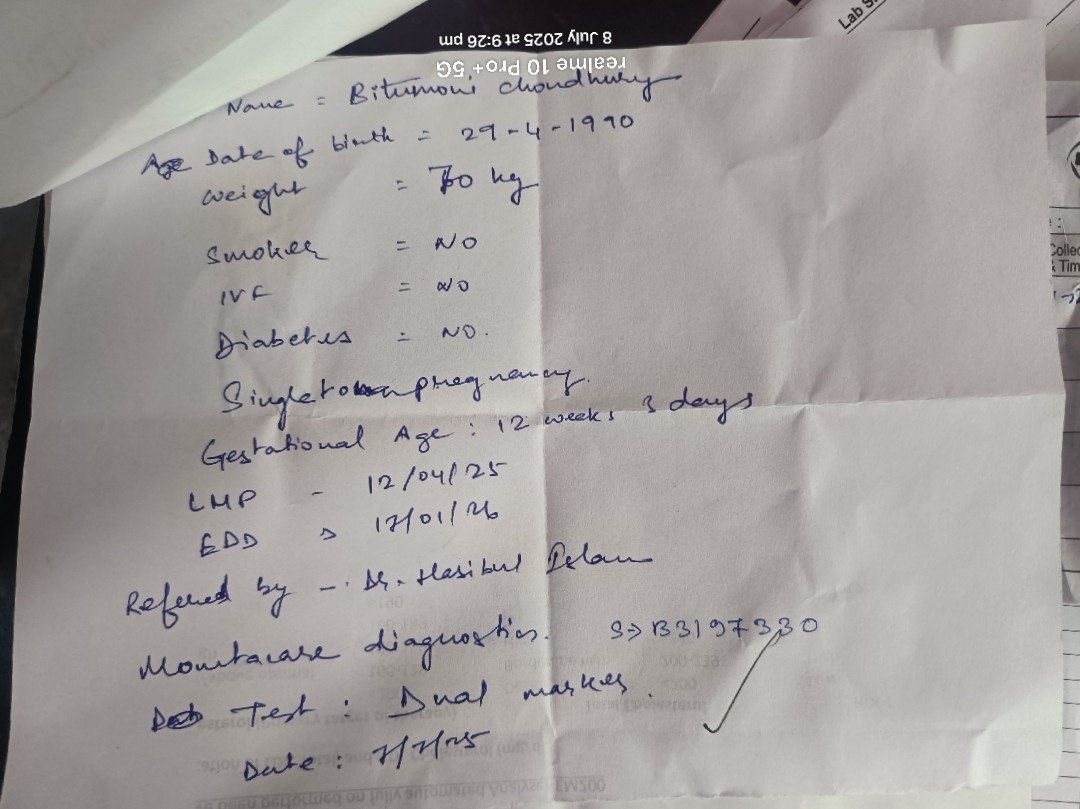 8 July 2025 at 9:26 pm
realme 10 Pro+ 5G
Name = Bitumoni choudhury
Age Date of birth = 29-4-1990
weight = 70 kg
Smoker = NO
IVF = NO
Diabetes = NO.
Singleton pregnancy.
Gestational Age : 12 weeks 3 days
LMP - 12/04/25
EDD 17/01/26
Refered by - Dr. Hasibul Islam
diagnostics. S B3197330
Test : Dual marker.
Date : 7/7/25
Lab
Collec
& Tim
Total Cholesterol
been performed on fully automated Analyse EM200